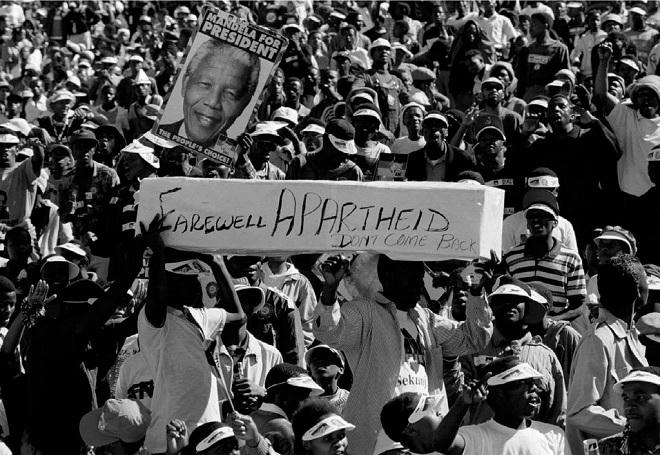 MANDELA FOR
PRESIDENT
THE PEOPLE'S CHOICE
FAREWELL APARTHEID
DON'T COME BACK
Sekun